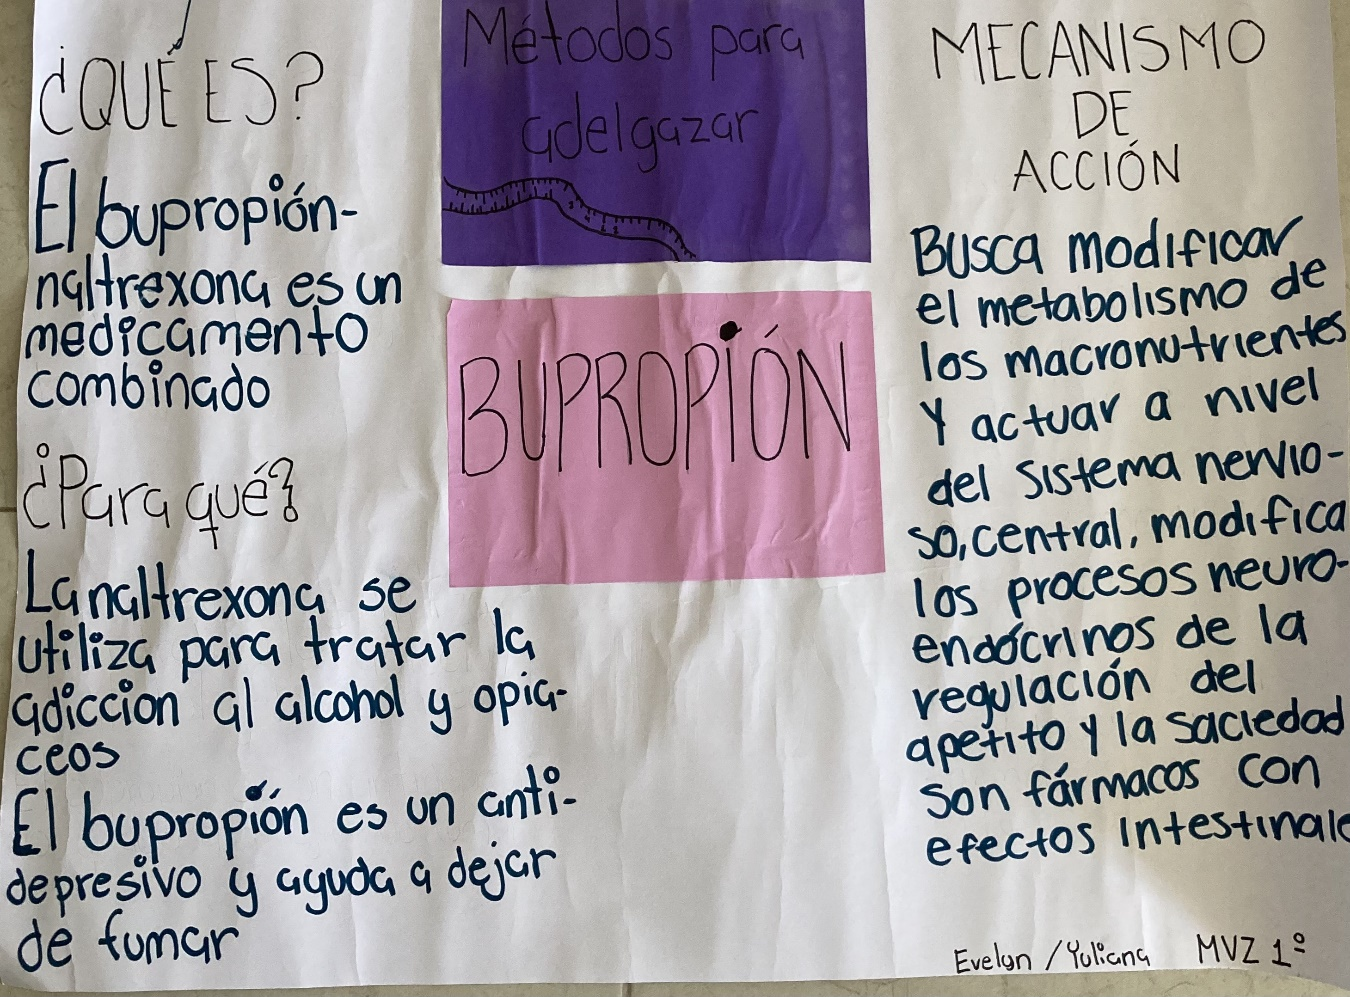 ¿QUÉ ES?
El bupropión-
naltrexona es un
medicamento
combinado
¿Para qué?
La naltrexona se
utiliza para tratar la
adiccion al alcohol y opia-
ceos
El bupropión es un anti-
depresivo y ayuda a dejar
de fumar
Métodos para
adelgazar
BUPROPIÓN
MECANISMO
DE
ACCIÓN
Busca modificar
el metabolismo de
los macronutrientes
y actuar a nivel
del sistema nervio-
so, central, modifica
los procesos neuro-
endócrinos de la
regulación del
apetito y la saciedad
son fármacos con
efectos intestinale
Evelyn / Yuliana MVZ 1º